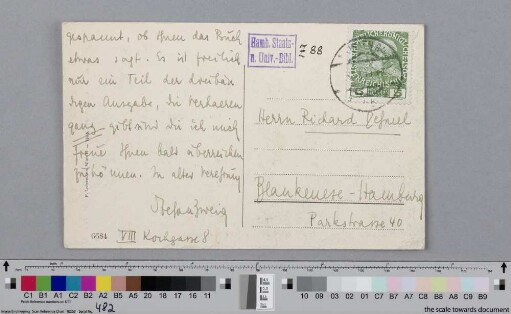 gespannt, ob Ihnen das Buch
etwas sagt. Es ist freilich
nur ein Teil der dreibän
digen Ausgabe, die Verhaeren
ganz gibt und die ich mich
freue Ihnen bald überreichen
zu können. In alter Verehrung
Stefan Zweig
VIII Kochgasse 8
Hamb. Staats-
u. Univ.-Bibl.
88
Herrn Richard Dehmel
Blankenese - Hamburg
Parkstrasse 40
C1 B1 A1 C2 B2 A2 B5 A5 20 18 17 16 11
10 09 03 02 01 C7 B7 A7 C8 B8 A8 C9 B9
482
the scale towards document